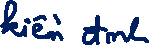 kiên định